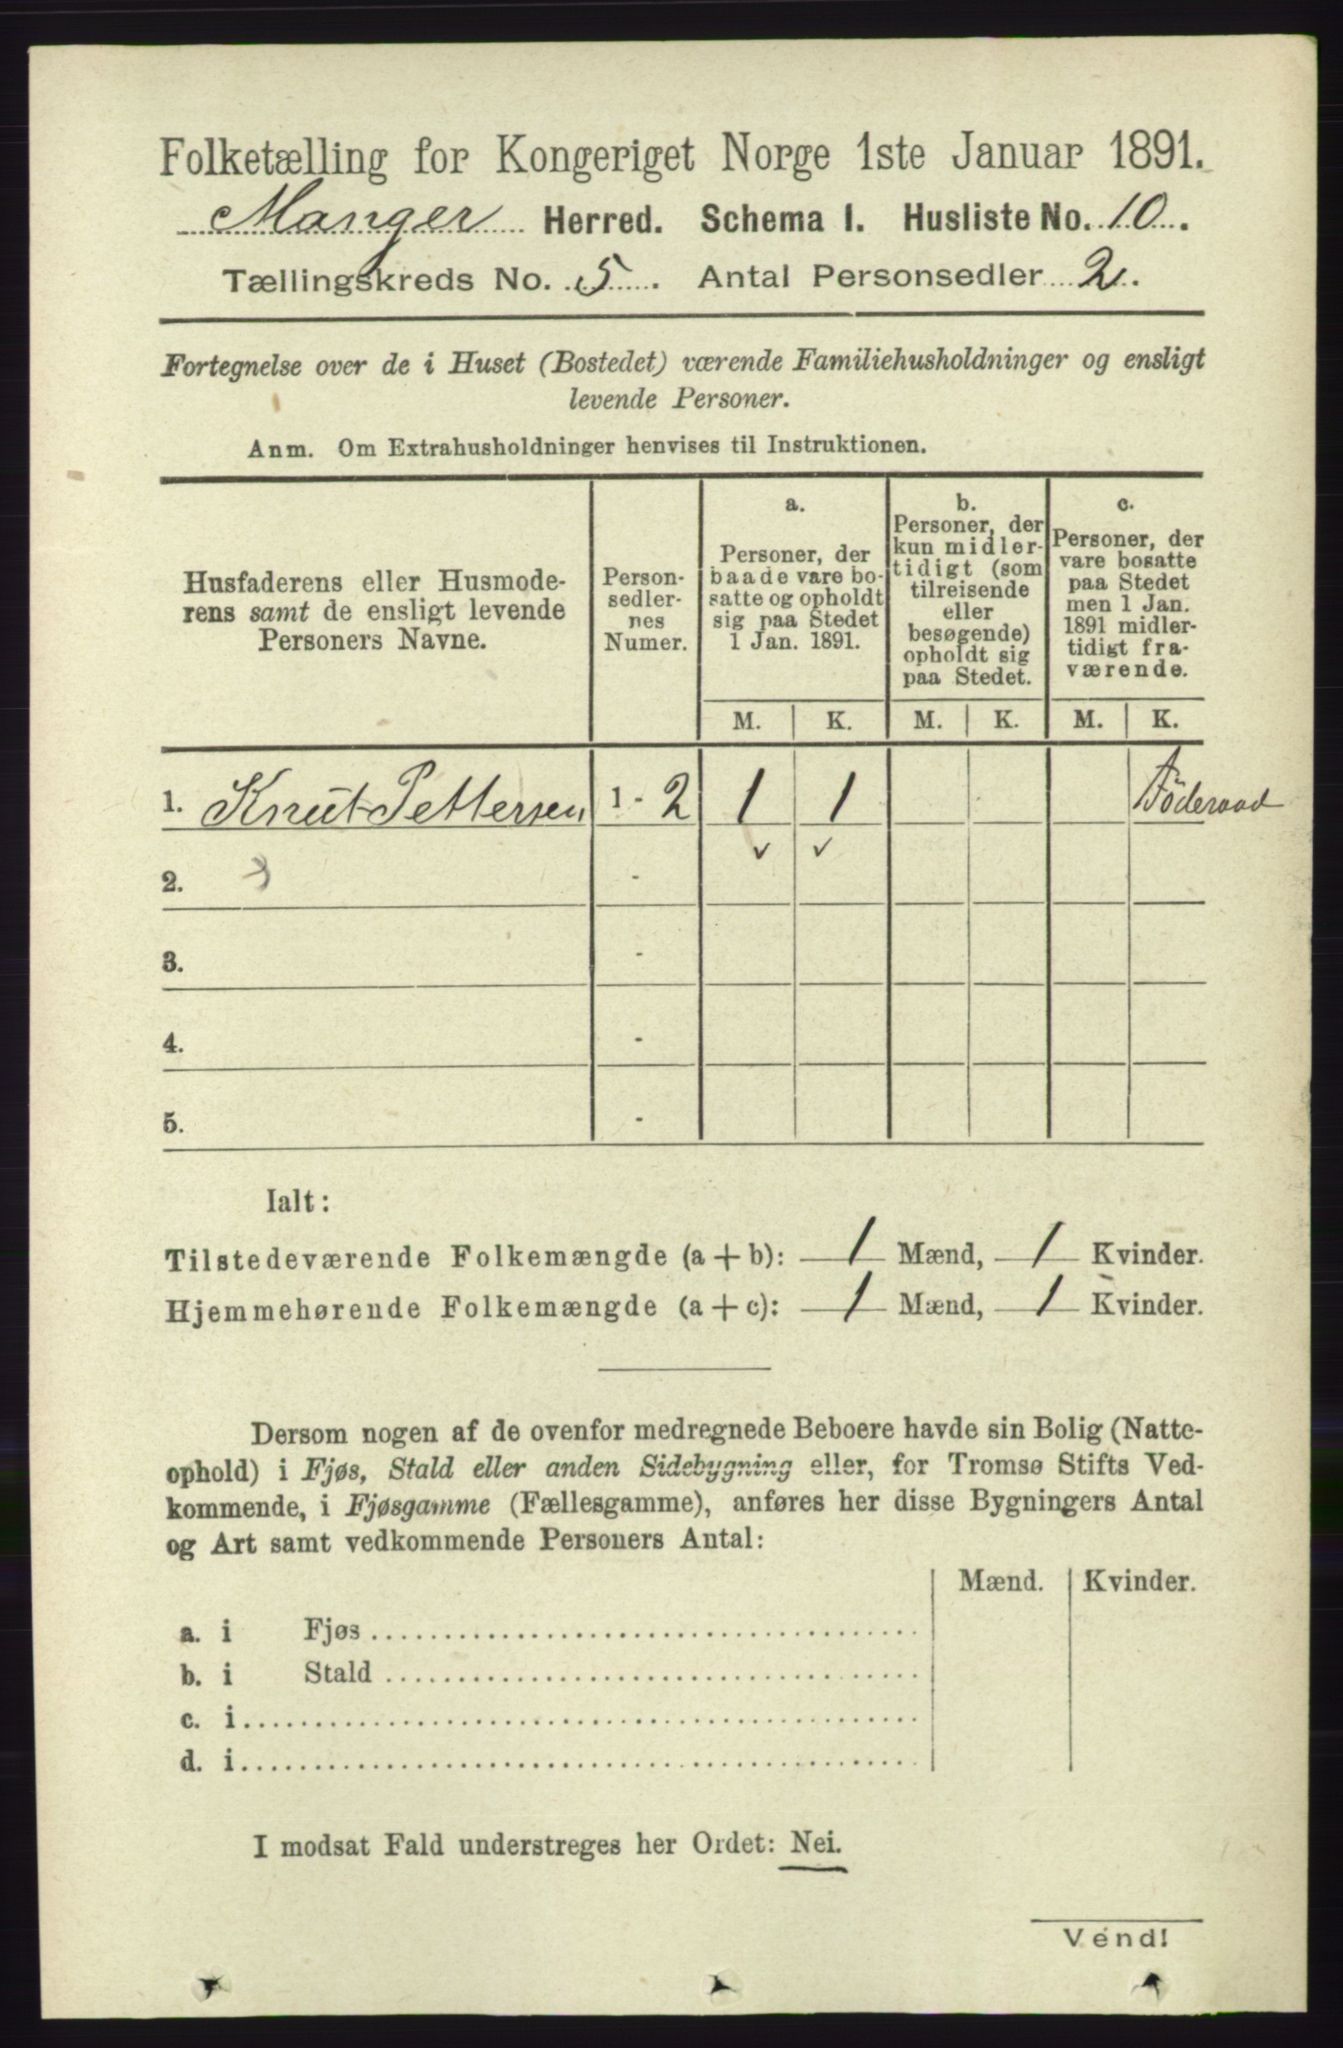 Folketælling for Kongeriget Norge 1ste Januar 1891.
Manger Herred. Schema I. Husliste No. 10.
Tællingskreds No. 5. Antal Personsedler 2.
Fortegnelse over de i Huset (Bostedet) værende Familiehusholdninger og ensligt
levende Personer.
Anm. Om Extrahusholdninger henvises til Instruktionen.
Husfaderens eller Husmode-
rens samt de ensligt levende
Personers Navne.
Person-
sedler-
nes
Numer.
a.
Personer, der
baade vare bo-
satte og opholdt
sig paa Stedet
1 Jan. 1891.
b.
Personer, der
kun midler-
tidigt (som
tilreisende
eller
besøgende)
opholdt sig
paa Stedet.
c.
Personer, der
vare bosatte
paa Stedet
men 1 Jan.
1891 midler-
tidigt fra-
værende.
M. K. M. K. M. K.
1. Knut Pettersen 1 - 2 1 1 Föderaad
2. -
3. -
4. -
5. -
Ialt:
Tilstedeværende Folkemængde (a + b): 1 Mænd, 1 Kvinder.
Hjemmehørende Folkemængde (a + c): 1 Mænd, 1 Kvinder.
Dersom nogen af de ovenfor medregnede Beboere havde sin Bolig (Natte-
ophold) i Fjøs, Stald eller anden Sidebygning eller, for Tromsø Stifts Ved-
kommende, i Fjøsgamme (Fællesgamme), anføres her disse Bygningers Antal
og Art samt vedkommende Personers Antal:
Mænd. Kvinder.
a. i Fjøs
b. i Stald
c. i
d. i
I modsat Fald understreges her Ordet: Nei.
Vend!